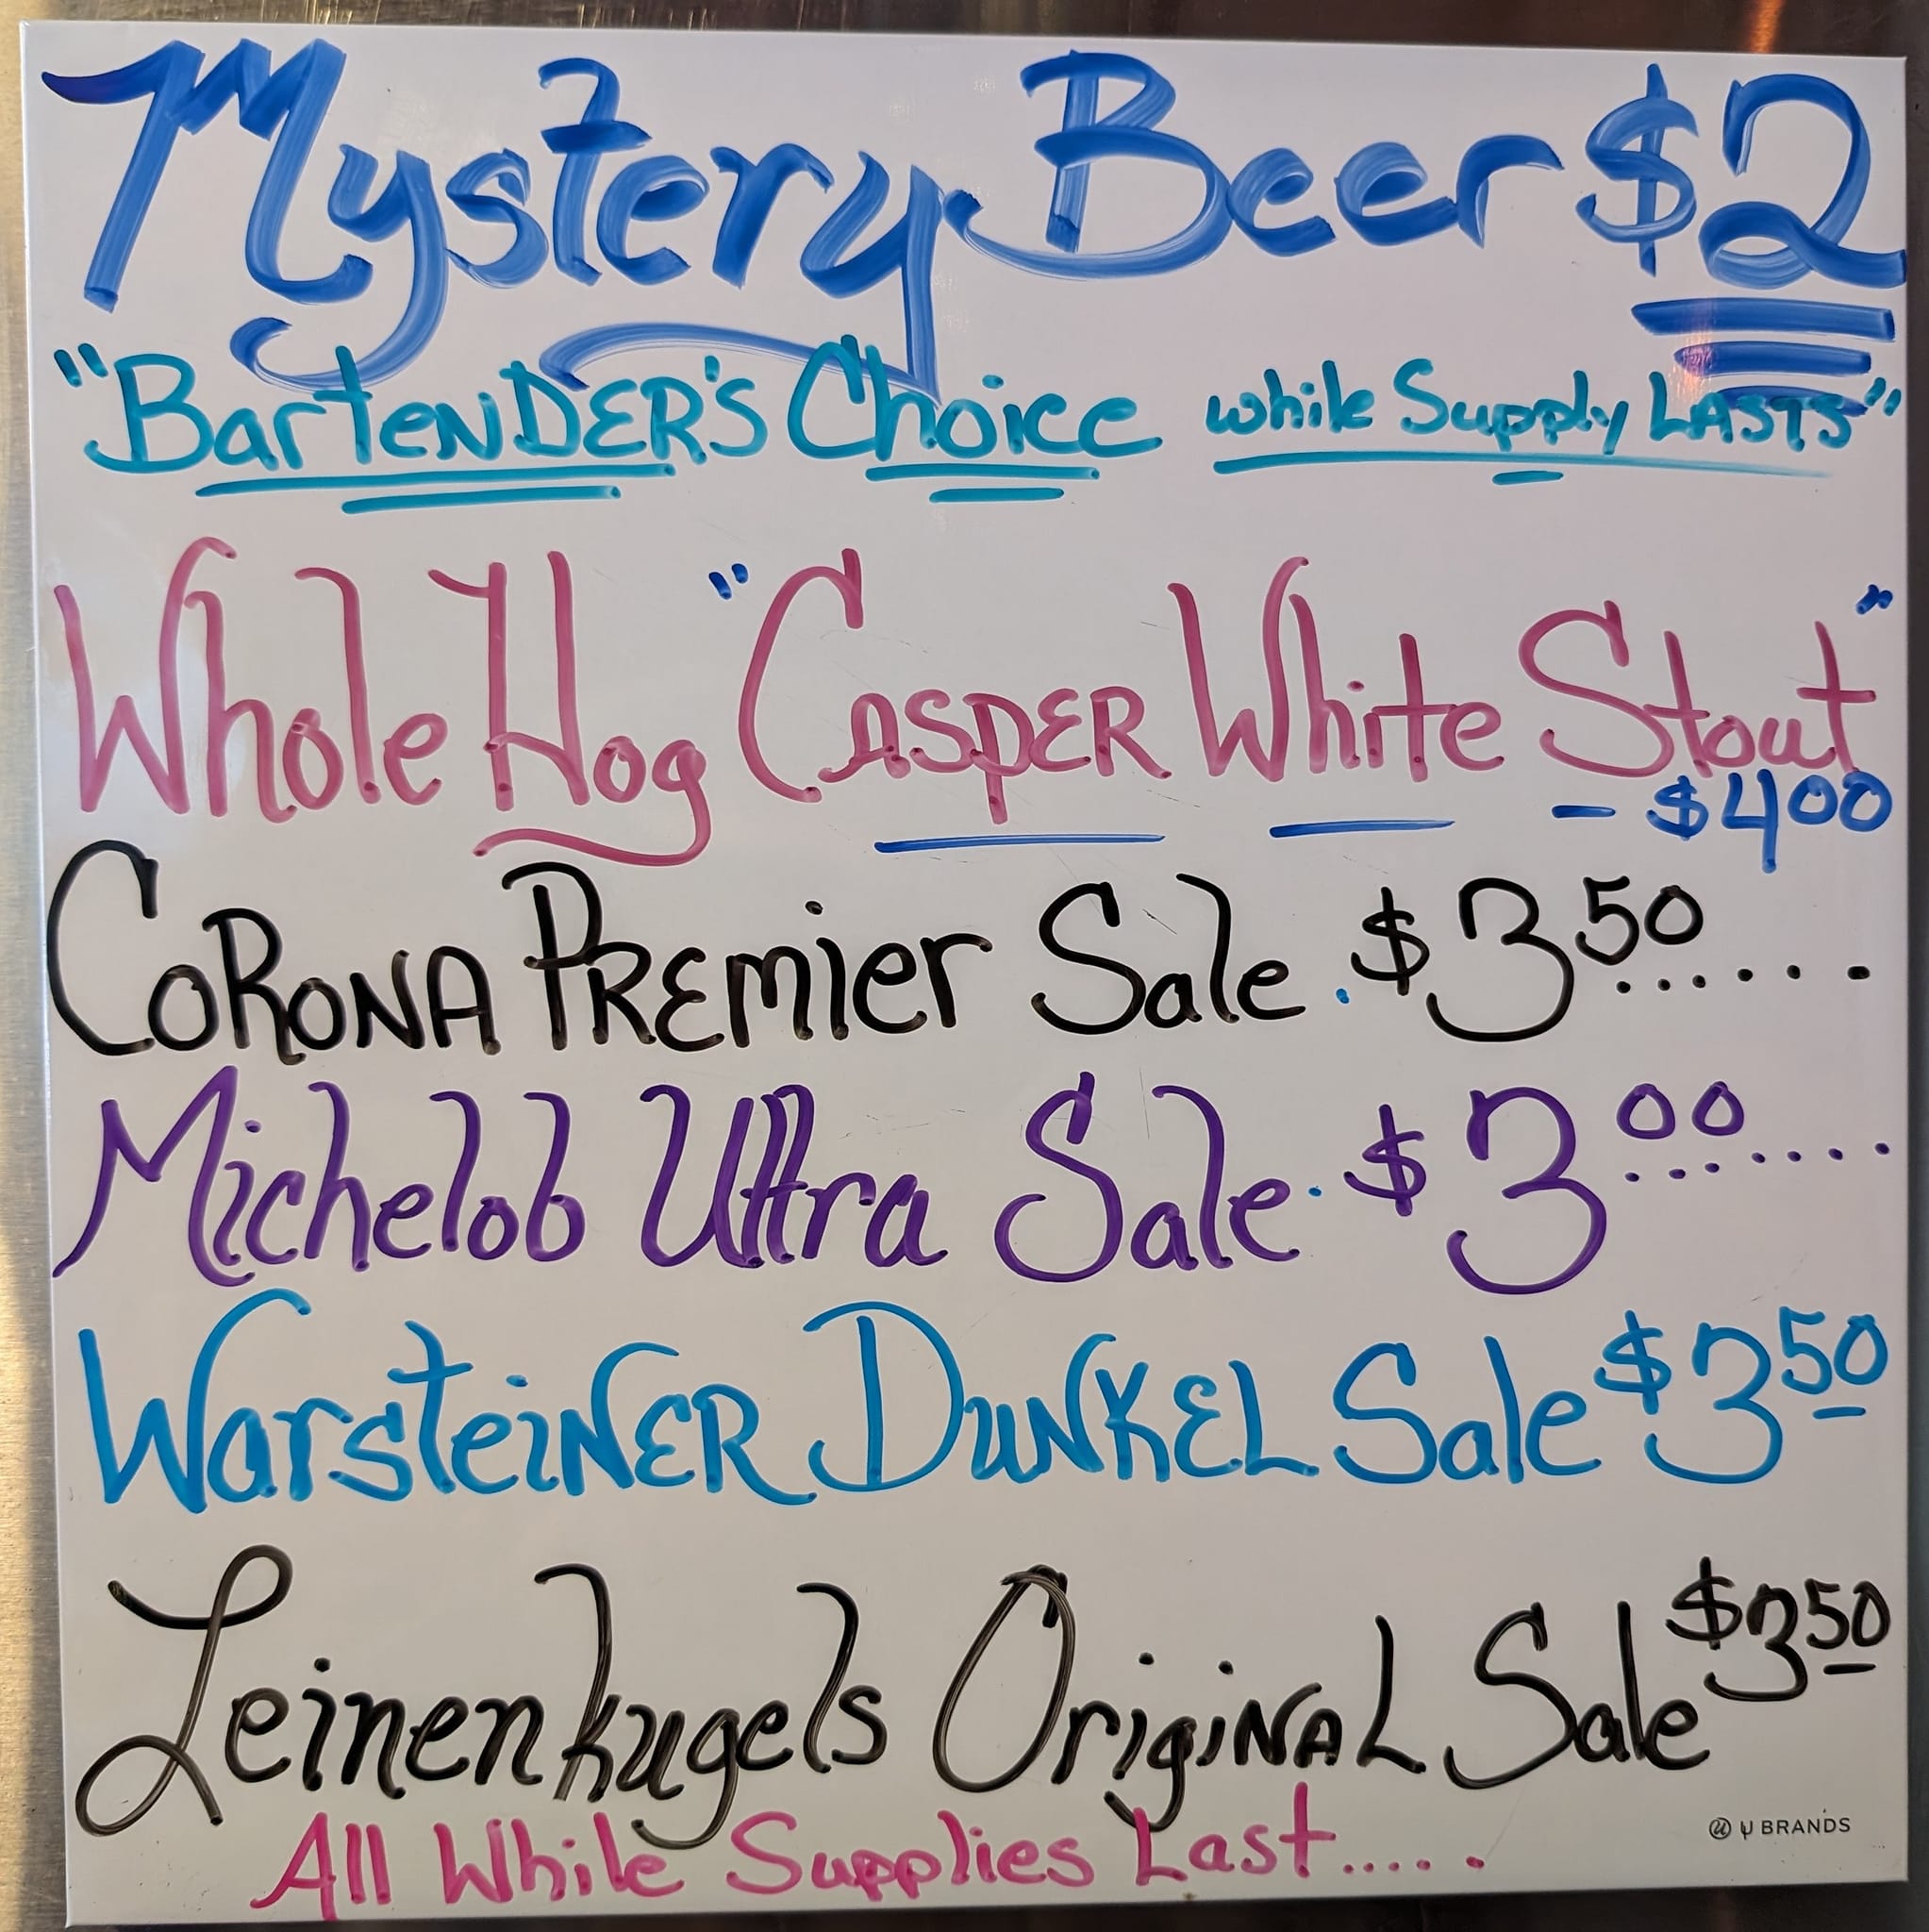 Mystery Beer $2
"BartenDER'S Choice while Supply LASTS"
Whole Hog "CASPER White Stout"
- $400
CORONA PREmier Sale . $3 50 ......
Michelob Ultra Sale. $3 00 .......
WarsteiNER DUNKEL Sale $3 50
Leinenkugels OrigiNAL Sale $3 50
All While Supplies Last.....
U BRANDS